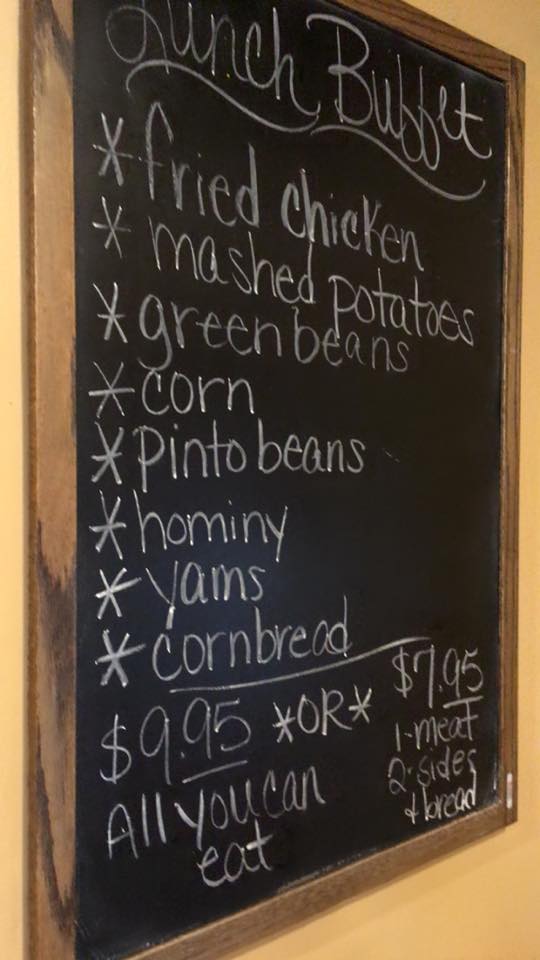 Lunch Buffet
* fried chicken
* mashed potatoes
* green beans
* corn
* pinto beans
* hominy
* yams
* cornbread
$9.95 *OR* $7.95
All you can
eat
1-meat
2-sides
+ bread